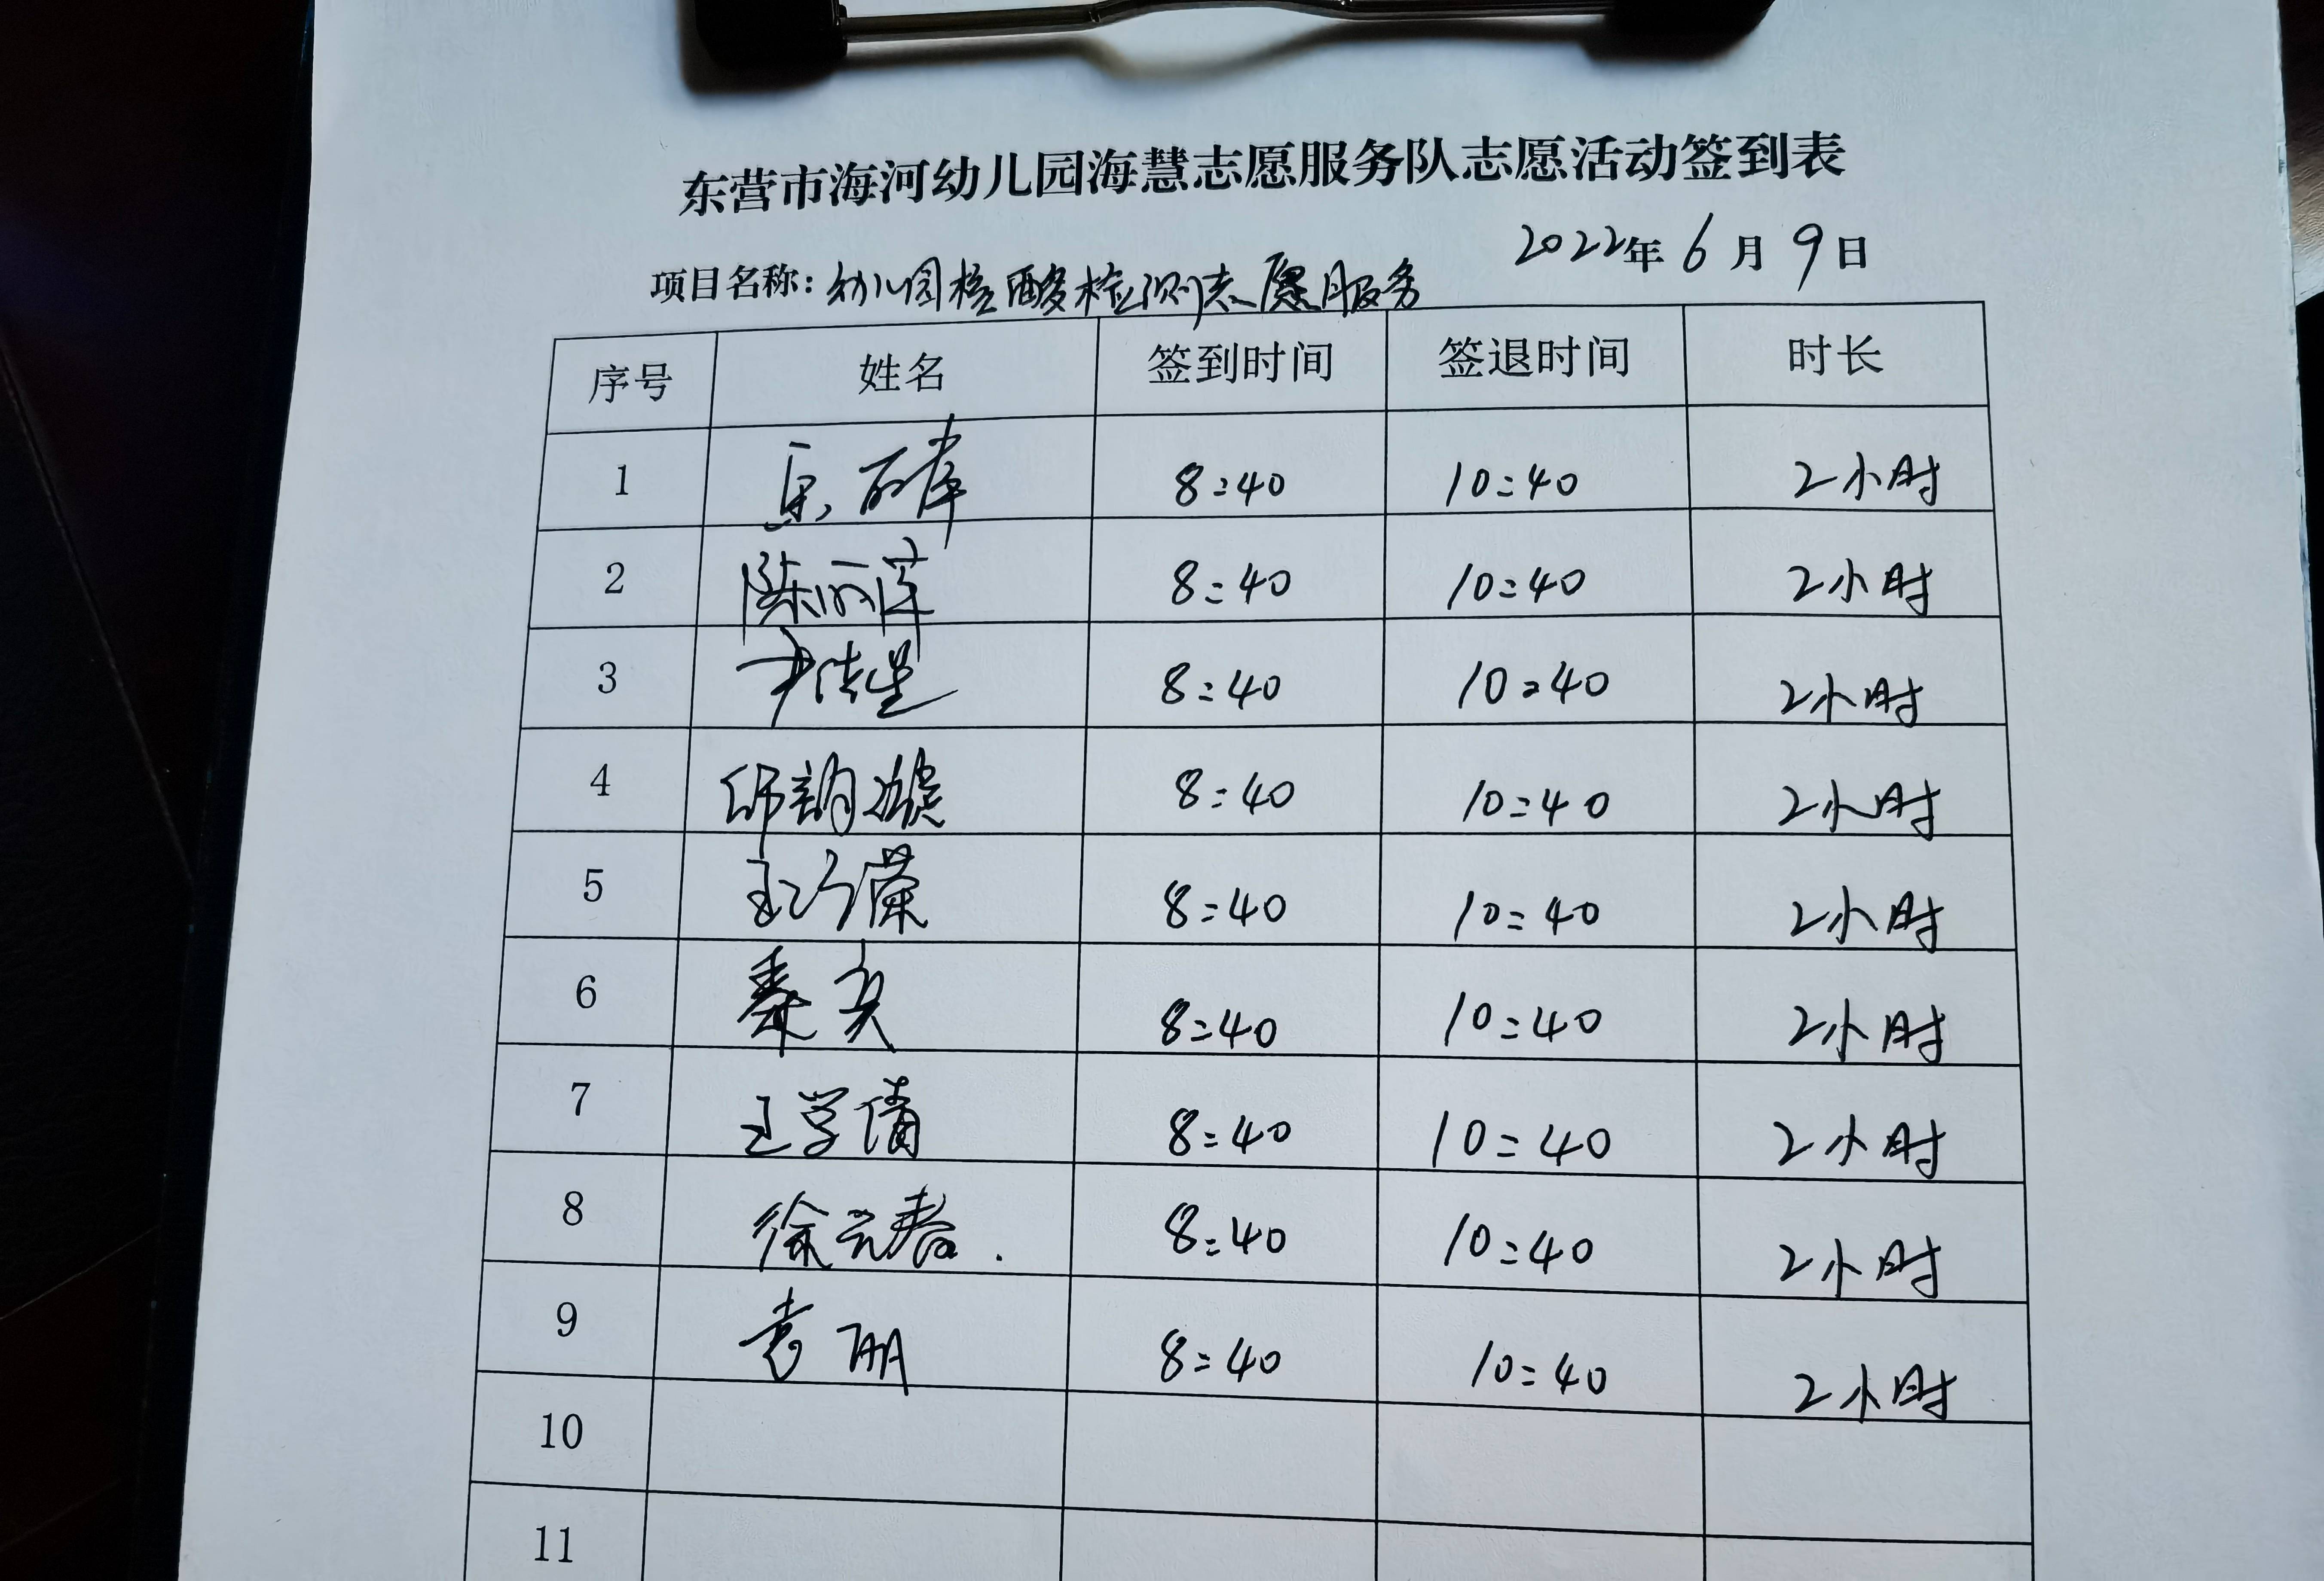 东营市海河幼儿园海慧志愿服务队志愿活动签到表
2022年6月9日
项目名称：幼儿园核酸检测志愿服务
序号 姓名 签到时间 签退时间 时长
1 8:40 10:40 2小时
2 陈丽萍 8:40 10:40 2小时
3 尹传星 8:40 10:40 2小时
4 8:40 10:40 2小时
5 王巧蕾 8:40 10:40 2小时
6 秦爽 8:40 10:40 2小时
7 王学倩 8:40 10:40 2小时
8 徐云春. 8:40 10:40 2小时
9 袁丽 8:40 10:40 2小时
10
11